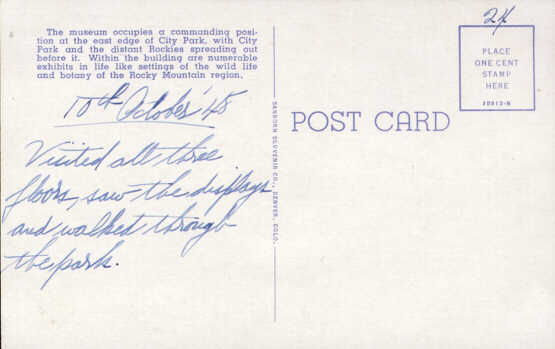 The museum occupies a commanding posi-
tion at the east edge of City Park, with City
Park and the distant Rockies spreading out
before it. Within the building are numerable
exhibits in life like settings of the wild life
and botany of the Rocky Mountain region.
10th October '45
Visited all three
floors, saw the displays
and walked through
the park.
SANBORN SOUVENIR CO., DENVER, COLO.
POST CARD
24
PLACE
ONE CENT
STAMP
HERE